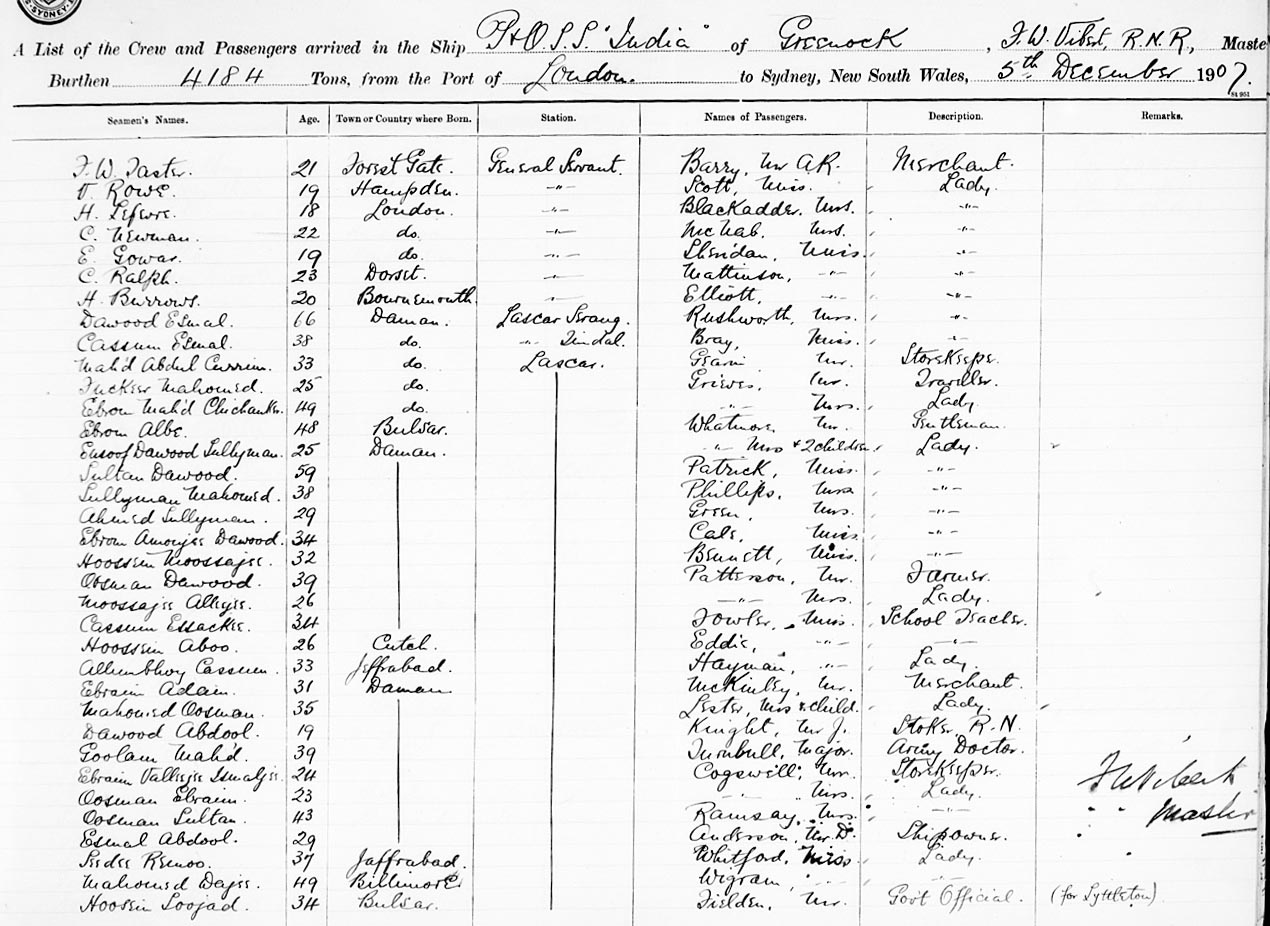 SYDNEY
A List of the Crew and Passengers arrived in the Ship P&O.S.S. "India" of Greenock, F. W. Vibert, R.N.R., Maste
Burthen 4184 Tons, from the Port of London. to Sydney, New South Wales, 5th December 1907.
Seamen's Names. Age. Town or Country where Born. Station. Names of Passengers. Description. Remarks.
F. W. Taster. 21 Forest Gate. General Servant. Barry, Mr A.R. Merchant.
V. Rowe. 19 Hampden. -"- Scott, Miss. Lady.
H. Lefevre. 18 London. -"- Blackadder. Mrs. -"-
C. Newman. 22 do. -"- McNab. Mrs. -"-
E. Gowar. 19 do. -"- Sheridan, Miss -"-
C. Ralph. 23 Dorset. -"- Mattinson, -"- -"-
H. Burrows. 20 Bournemouth. -"- Elliott, -"- -"-
Dawood Esmal. 66 Daman. Lascar Serang. Rushworth, Mrs. -"-
Cassum Esmal. 38 do. -"- Tindal. Bray, Miss. -"-
Mah'd Abdul Currim. 33 do. Lascar. Mr. Storekeepe.
Fucker Mahomed. 25 do. Grieves, Mr. Traveller.
Ebrom Mah'd Chichanker. 49 do. -"- Mrs. Lady.
Ebrom Albe. 48 Bulsar. Whatmore, Mr. Gentleman.
Eusoof Dawood Sullyman. 25 Daman. -"- Mrs + 2 children Lady.
Sultan Dawood. 59 Patrick, Miss. -"-
Sullyman Mahomed. 38 Phillips, Mrs -"-
Ahmed Sullyman. 29 Green, Mrs. -"-
Ebrom Amoojee Dawood. 34 Cale, Miss. -"-
Hoossein Moossajee. 32 Bennett, Miss. -"-
Oosman Dawood. 39 Patterson, Mr. Farmer.
Moossajee Allegee. 26 -"- Mrs. Lady.
Cassum Essackee. 34 Fowler, Miss. School Teacher.
Hoossein Aboo. 26 Cutch. Eddie, -"- -"-
Allumbhoy Cassum. 33 Jeffrabad. Hayman, -"- Lady.
Ebraim Adam. 31 Daman McKinley, Mr. Merchant.
Mahomed Oosman. 35 Lester, Mrs & child. Lady.
Dawood Abdool. 19 Knight, Mr J. Stoker, R.N.
Goolam Mah'd. 39 Turnbull, Major. Army Doctor.
Ebraim Valligie Ismaljee. 24 Cogswill, Mr. Storekeeper.
Oosman Ebraim. 23 " Mrs. Lady. F W Vibert
Oosman Sultan. 43 Ramsay, Mrs. -"- Master
Esmal Abdool. 29 Anderson, Mr. D. Shipowner.
Seedee Remoo. 37 Jaffrabad. Whitford, Miss Lady.
Mahomed Dajee. 49 Billimore Wigram, -"- -"-
Hoosein Loojad. 34 Bulsar. Fielden, Mr. Gov't Official. (for Lyttleton).